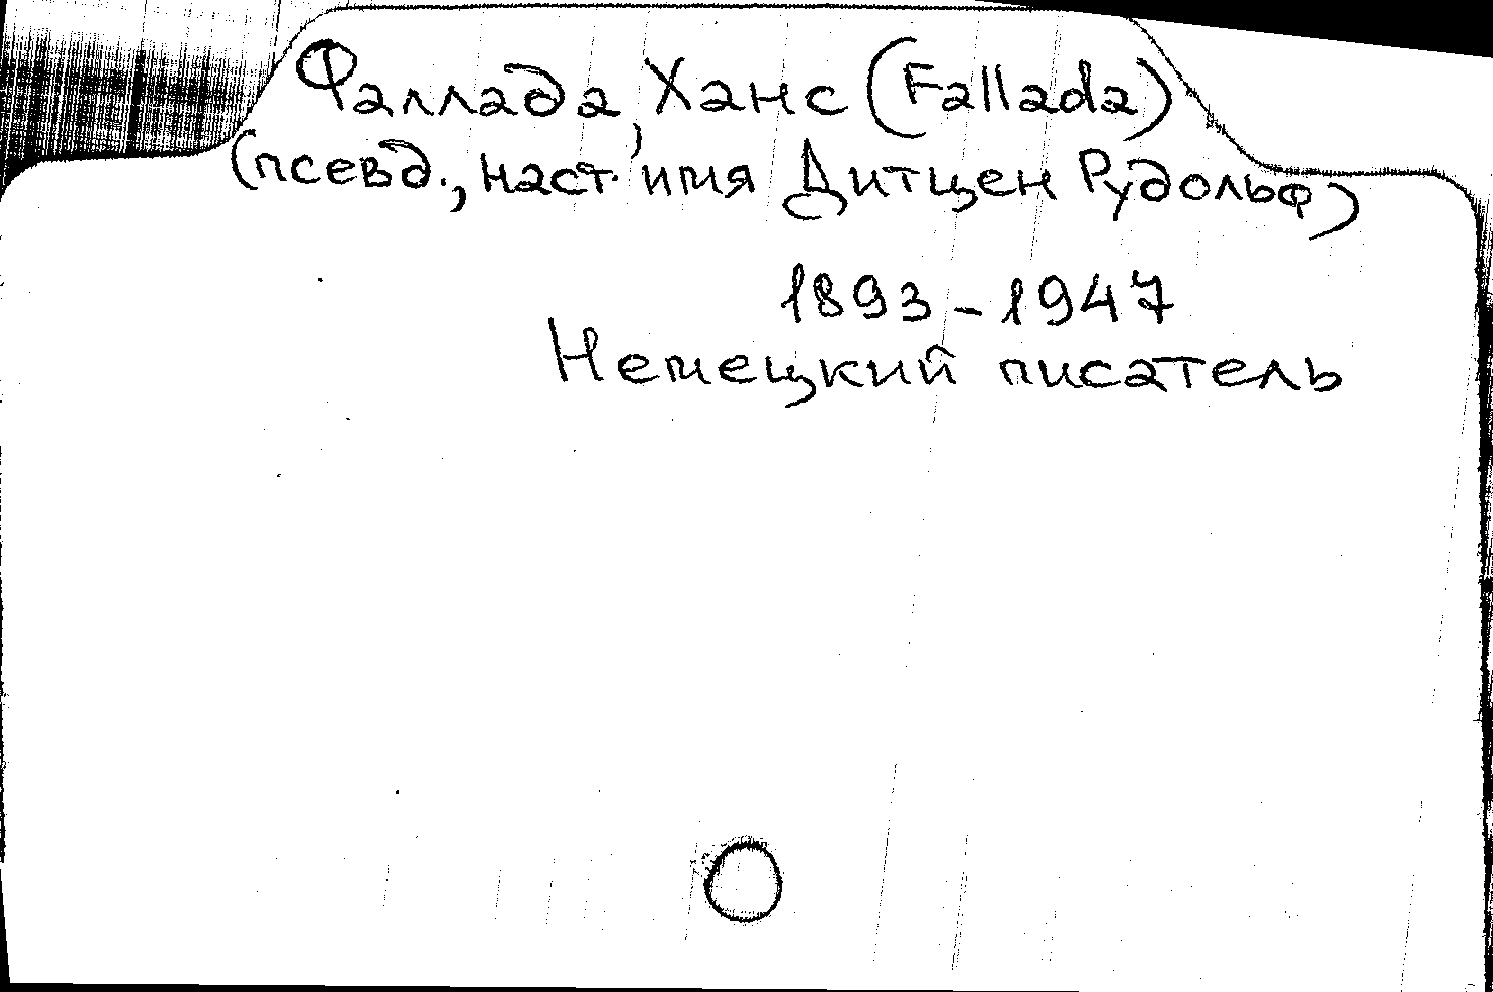 Фаллада, Ханс (Fallada)
(псевд., наст. имя Дитцен Рудольф)
1893-1947
Немецкий писатель